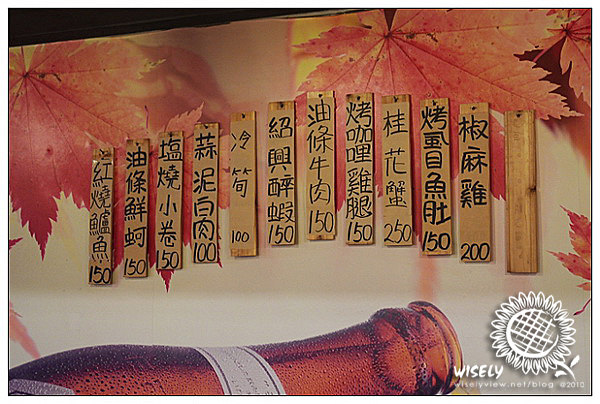 紅燒鱸魚 150
油條鮮蚵 150
塩燒小卷 150
蒜泥白肉 100
冷筍 100
紹興醉蝦 150
油條牛肉 150
烤咖哩雞腿 150
桂花蟹 250
烤虱目魚肚 150
椒麻雞 200
WISELY
wiselyview.net/blog @2010